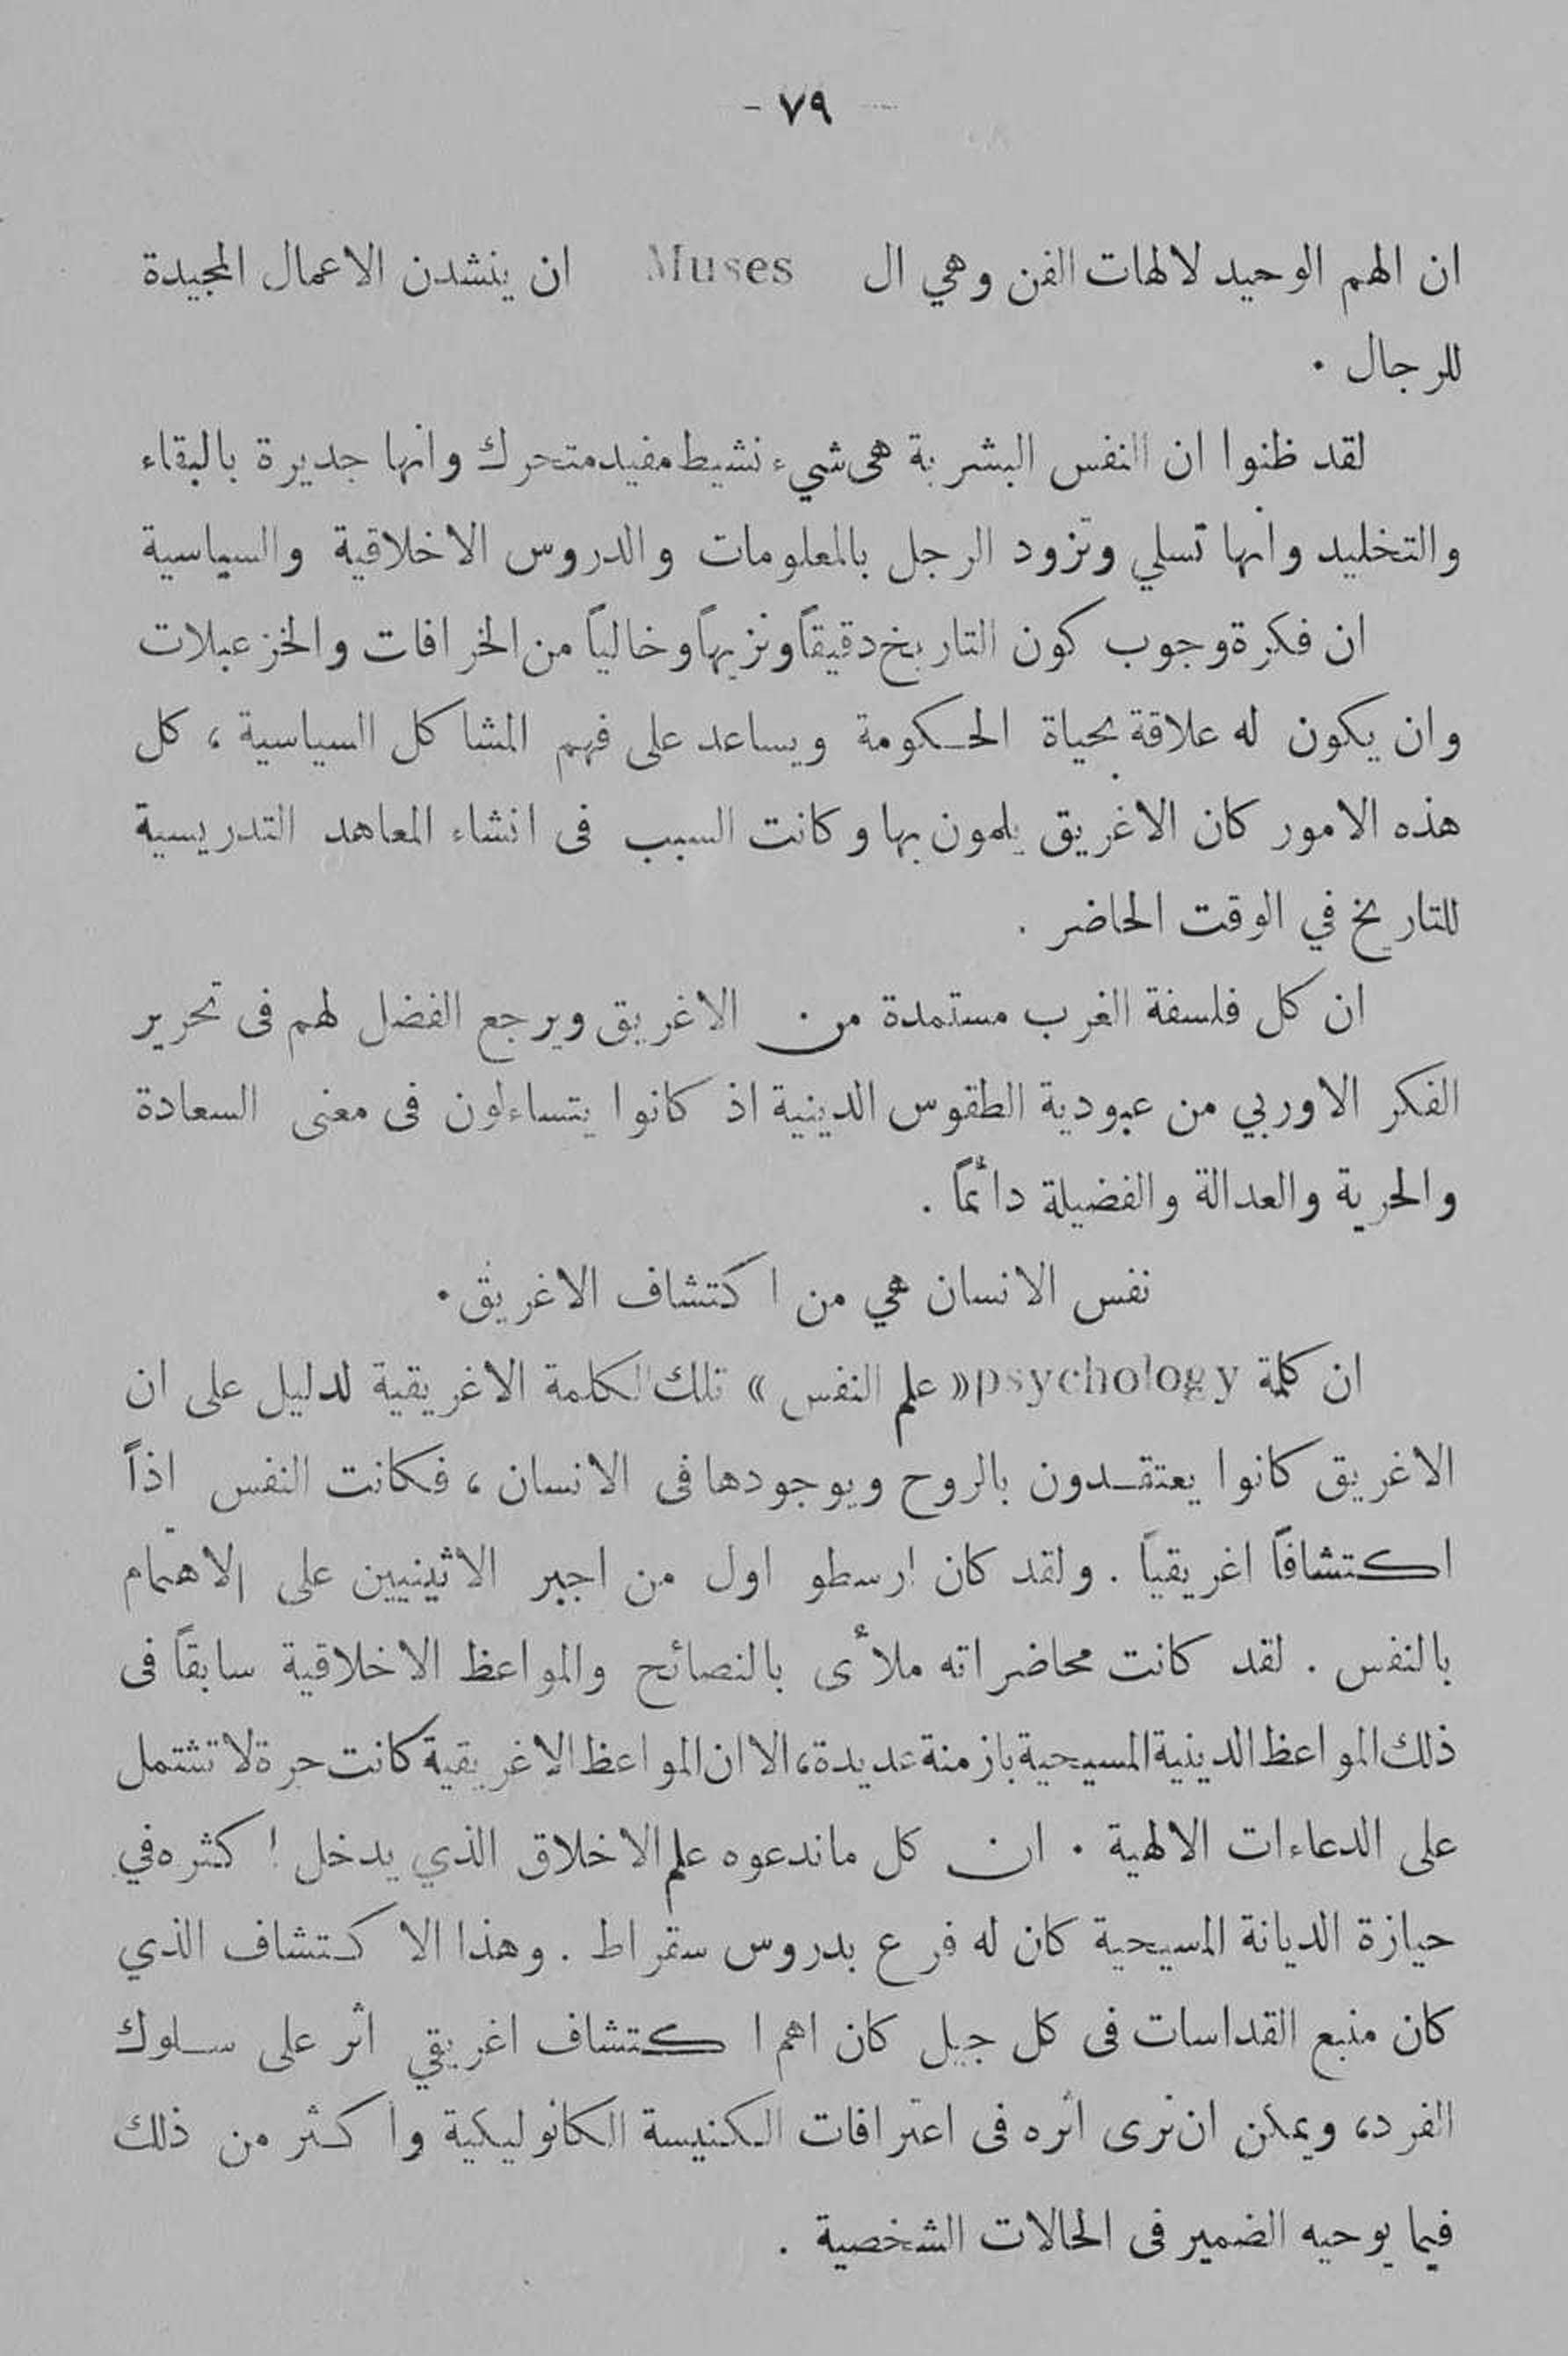 - ٧٩ -
ان الهم الوحيد لالهات الفن وهي ال Muses ان ينشدن الاعمال المجيدة
للرجال .
لقد ظنوا ان النفس البشرية هى شيء نشيط مفيد متحرك وانها جديرة بالبقاء
والتخليد وانها تسلي وتزود الرجل بالمعلومات والدروس الاخلاقية والسياسية
ان فكرة وجوب كون التاريخ دقيقاً ونزيهاً وخالياً من الخرافات والخزعبلات
وان يكون له علاقة بحياة الحكومة ويساعد على فهم المشاكل السياسية ، كل
هذه الامور كان الاغريق يلمون بها وكانت السبب فى انشاء المعاهد التدريسية
للتاريخ في الوقت الحاضر .
ان كل فلسفة الغرب مستمدة من الاغريق ويرجع الفضل لهم فى تحرير
الفكر الاوربي من عبودية الطقوس الدينية اذ كانوا يتساءلون فى معنى السعادة
والحرية والعدالة والفضيلة دائماً .
نفس الانسان هي من اكتشاف الاغريق .
ان كلمة psychology « علم النفس » تلك الكلمة الاغريقية لدليل على ان
الاغريق كانوا يعتقدون بالروح وبوجودها فى الانسان ، فكانت النفس اذاً
اكتشافاً اغريقياً . ولقد كان ارسطو اول من اجبر الاثينيين على الاهتمام
بالنفس . لقد كانت محاضراته ملأى بالنصائح والمواعظ الاخلاقية سابقاً فى
ذلك المواعظ الدينية المسيحية بازمنة عديدة، الا ان المواعظ الاغريقية كانت حرة لا تشتمل
على الدعاءات الالهية . ان كل ماندعوه علم الاخلاق الذي يدخل اكثره في
حيازة الديانة المسيحية كان له فرع بدروس سقراط . وهذا الاكتشاف الذي
كان منبع القداسات فى كل جيل كان اهم اكتشاف اغريقي اثر على سلوك
الفرد، ويمكن ان نرى اثره فى اعترافات الكنيسة الكاثوليكية واكثر من ذلك
فيما يوحيه الضمير فى الحالات الشخصية .